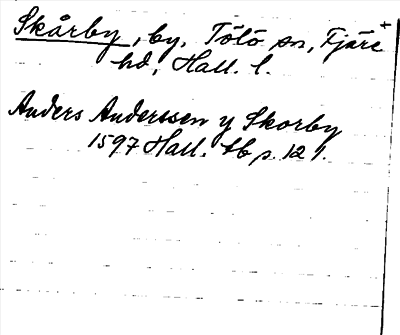 Skårby, by, Tölö sn, Fjäre
hd, Hall. l.
Anders Anderssen y Skorby
1597 Hall. tb p. 121.